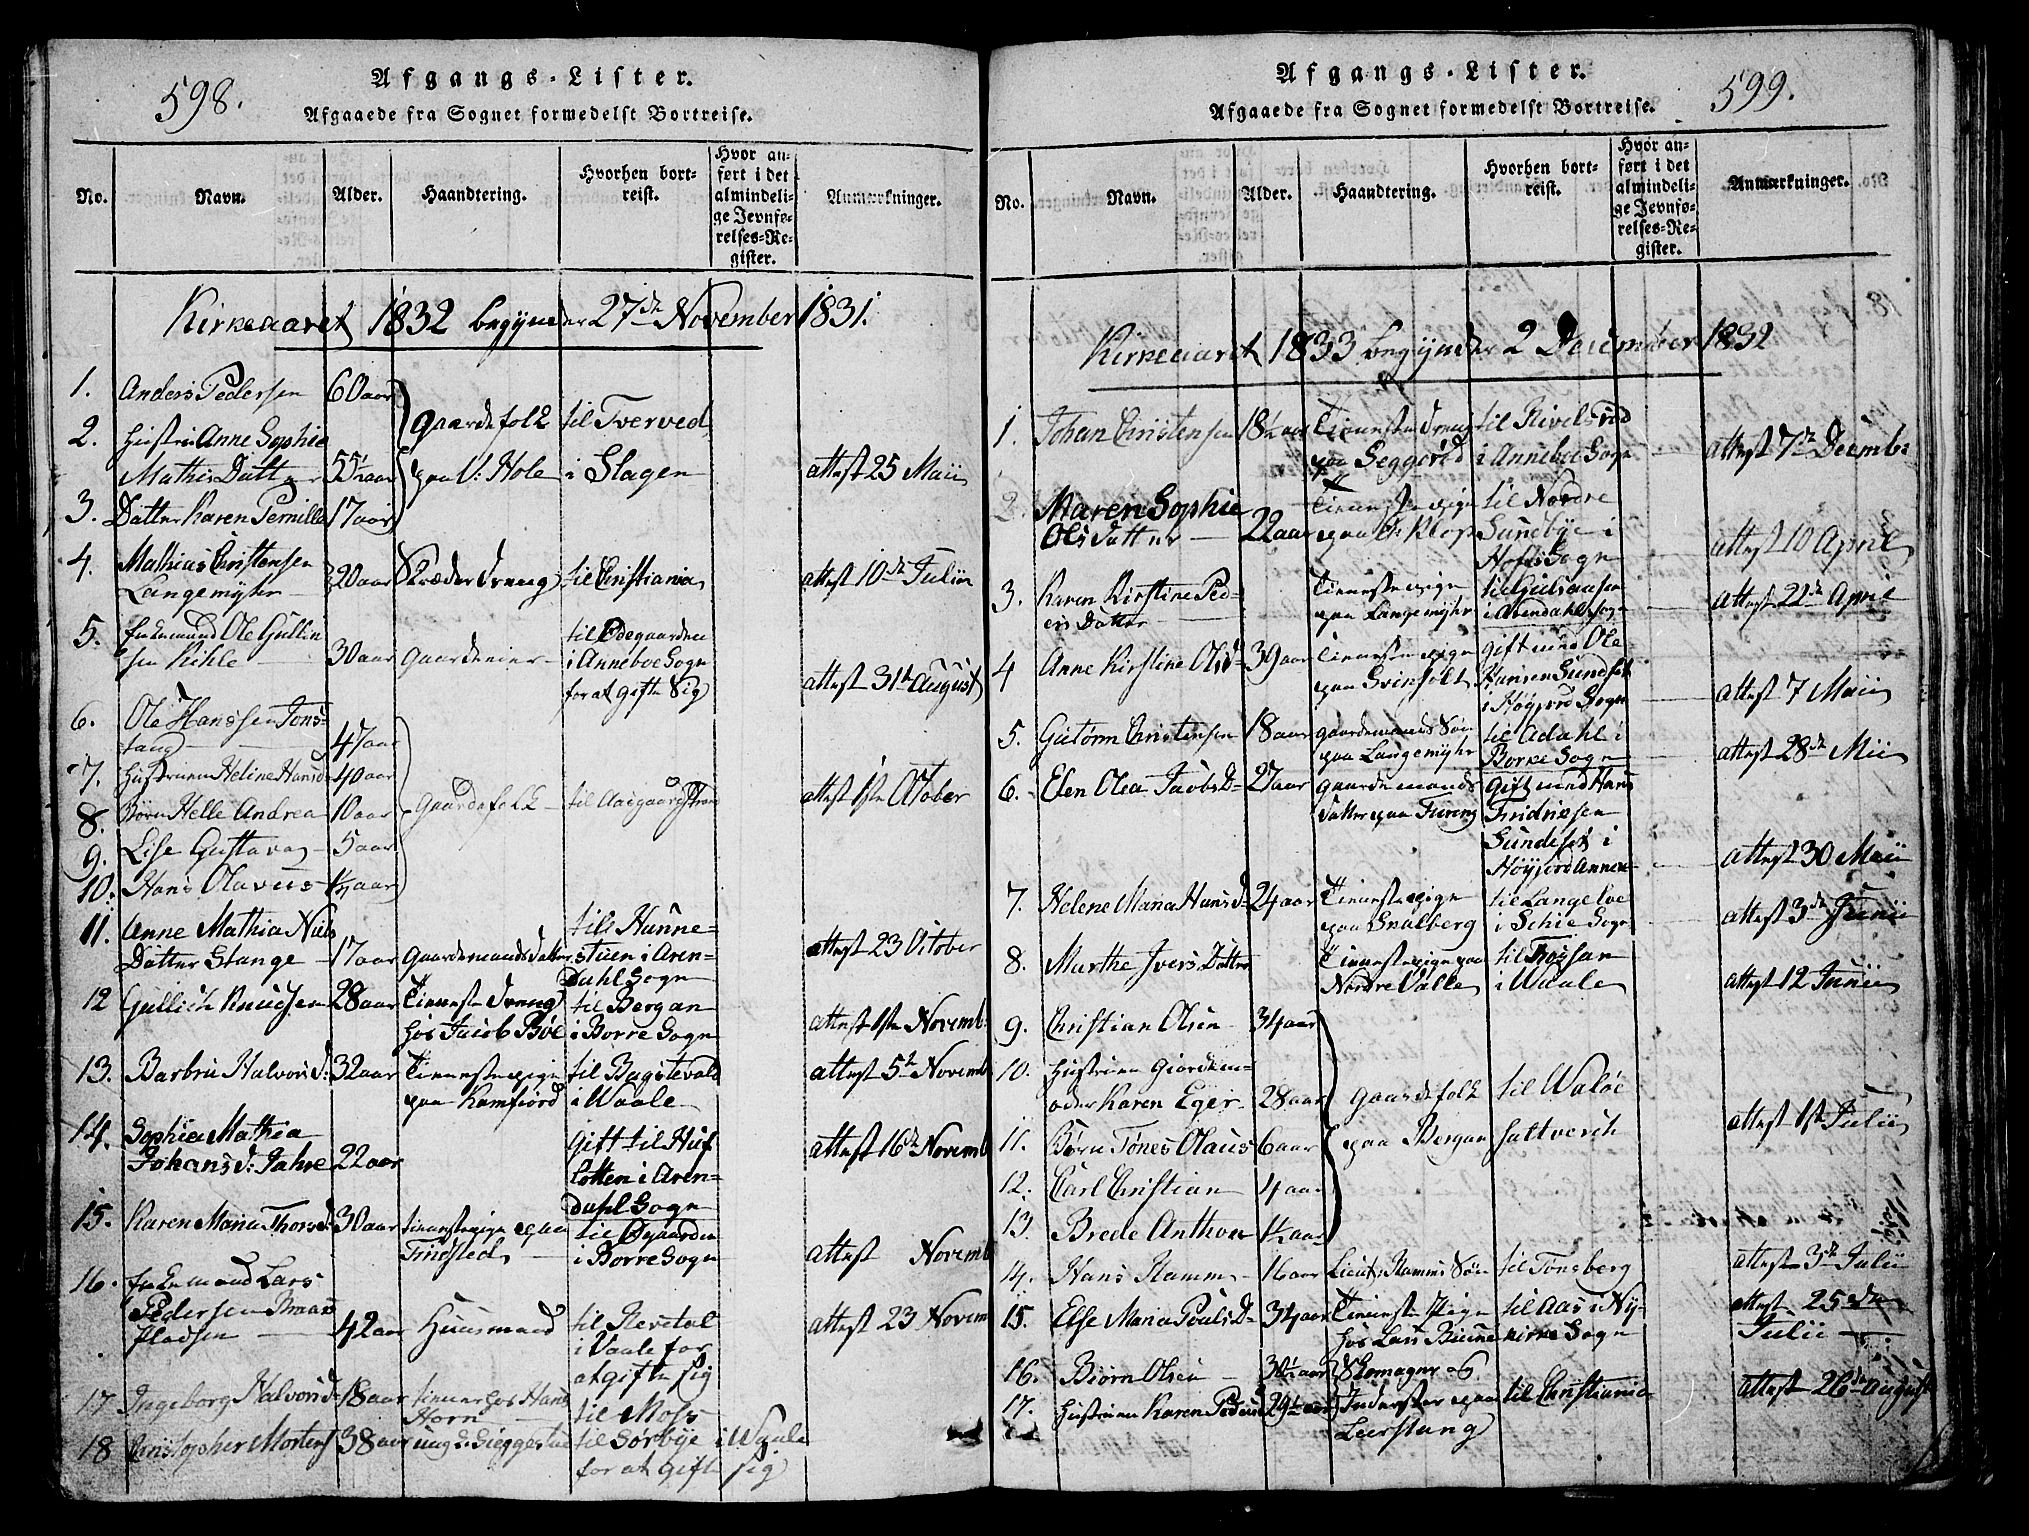 598.
Afgangs-Lister.
Afgaaede fra Sognet formedelst Bortreise.
No. Navn. Alder. Haandtering. Hvorhen bortreist. Hvor anført i det almindelige Jevnførelses-Register. Anmærkninger.
Kirkeaaret 1832 begynder 27de November 1831.
1. Anders Pedersen 60 aar
2. Hustru Anne Sophie Gaardefolk til Tverved
Mathis Datter 55½ aar paa V: Hole i Slagen attest 25 Maii
3. Datter Karen Pernille 17 aar
4. Mathias Christensen 20 aar Skræder Dreng til Christiania attest 10de Julii
Langemyhr
5. Enkemand Ole Gullik- til Ødegaarden
sen Kihle 30 aar Gaardeeier i Anneboe Sogn
for at gifte Sig attest 31te August
6. Ole Hanssen Tons-
tang 47 aar
7. Hustruen Heline Hansd 40 aar
8. Børn Helle Andrea 10 aar Gaardefolk til Aasgaardstran attest 1ste October
9. Lise Gustava 5 aar
10. Hans Olavus ½ aar
11. Anne Mathia Niels til Hunne-
Datter Stange 17 aar Gaardemands Datter stuen i Aren- attest 23 October
dahl Sogn
12 Gullich Knudsen 28 aar Tieneste Dreng til Bergan
hos Jacob Bøe i Borre Sogn attest 1ste Novemb.
13. Barbru Halvors d: 32 aar Tienestepige til Bagstevold attest 5te Novemb
paa Kamfiord i Waale
14. Sophia Mathia Gift til Huf-
Johans d: Jahre 22 aar totten i Aren- attest 16de Novemb
dahl Sogn
15. Karen Maria Thorsd: 30 aar tienestepige paa til Øgaarden
Tindsted i Borre Sogn attest Novemb
16. Enkemand Lars
Pedersen Braar-
pladsen 42 aar Huusmand til attest 23 Novem
i Vaale for
at gifte sig
17 Ingeborg Halvorsd 18 aar tiener hos Hans
Horn til Moss
18 Christopher Mortens 38 aar til Sørbye i Waale
for at gifte sig
599.
Afgangs-Lister.
Afgaaede fra Sognet formedelst Bortreise.
No. Navn. Alder. Haandtering. Hvorhen bortreist. Hvor anført i det almindelige Jevnførelses-Register. Anmærkninger.
Kirkeaaret 1833 begynder 2 December 1832
1. Johan Christensen 18½ aar Tieneste Dreng til Rivelsrød
paa Seggerød i Anneboe Sogn attest 7de Decemb:
2. Maren Sophie Tienestepige til Nordre
Ols Datter 22 aar paa Sundbye i attest 10 April
Hofs Sogn
3. Karen Kirstine Ped- Tienestepige
ers Datter paa Langemyhr i Arendahl Sogn attest 22de April
4 Anne Kirstine Olsd 39 aar Tienestepige gift med Ole
paa Svinholt Hansen Sundset attest 7 Maii
i Høyjord Sogn
5. Gutorm Christensen 18 aar Gaardemands Søn til Adahl i
paa Langemyhr Borre Sogn attest 28de Mii
6. Elen Olea Jacobs D- 27 aar Gaardemands Gift med Hans
Datter paa Fureng Fridrichsen
Sundset i
Høyjord Annex attest 30 Maii
7. Helene Maria Hansd- 24 aar Tienestepige til Langeløe
paa Snalberg i Schie Sogn attest 3de Junii
8. Marthe Ivers Datter Tienestepige paa til
Nordre Valle i Waale attest 12 Junii
9. Christian Olsen 34 aar
10. Hustruen Giordem-
oder Karen Eger 28 aar Gaardefolk til Waløe
11. Børn Tønes Olaus 6 aar paa Bergan saltverk attest 1ste Julii
12. Carl Christian 4 aar
13. Brede Anthon ½ aar
14. Hans Stamm 16 aar Lieut: Stamms Søn til Tønsberg attest 3de Julii
15. Else Maria Pouls D- 34 aar Tieneste Pige til Aas i Ny- attest 25de
hos Lars kirke Sogn Julii
16. Biørn Olsen 30½ aar Skomager og
17. Hustruen Karen 29½ aar Inderster paa til Christiania attest 26de August
Leerstang